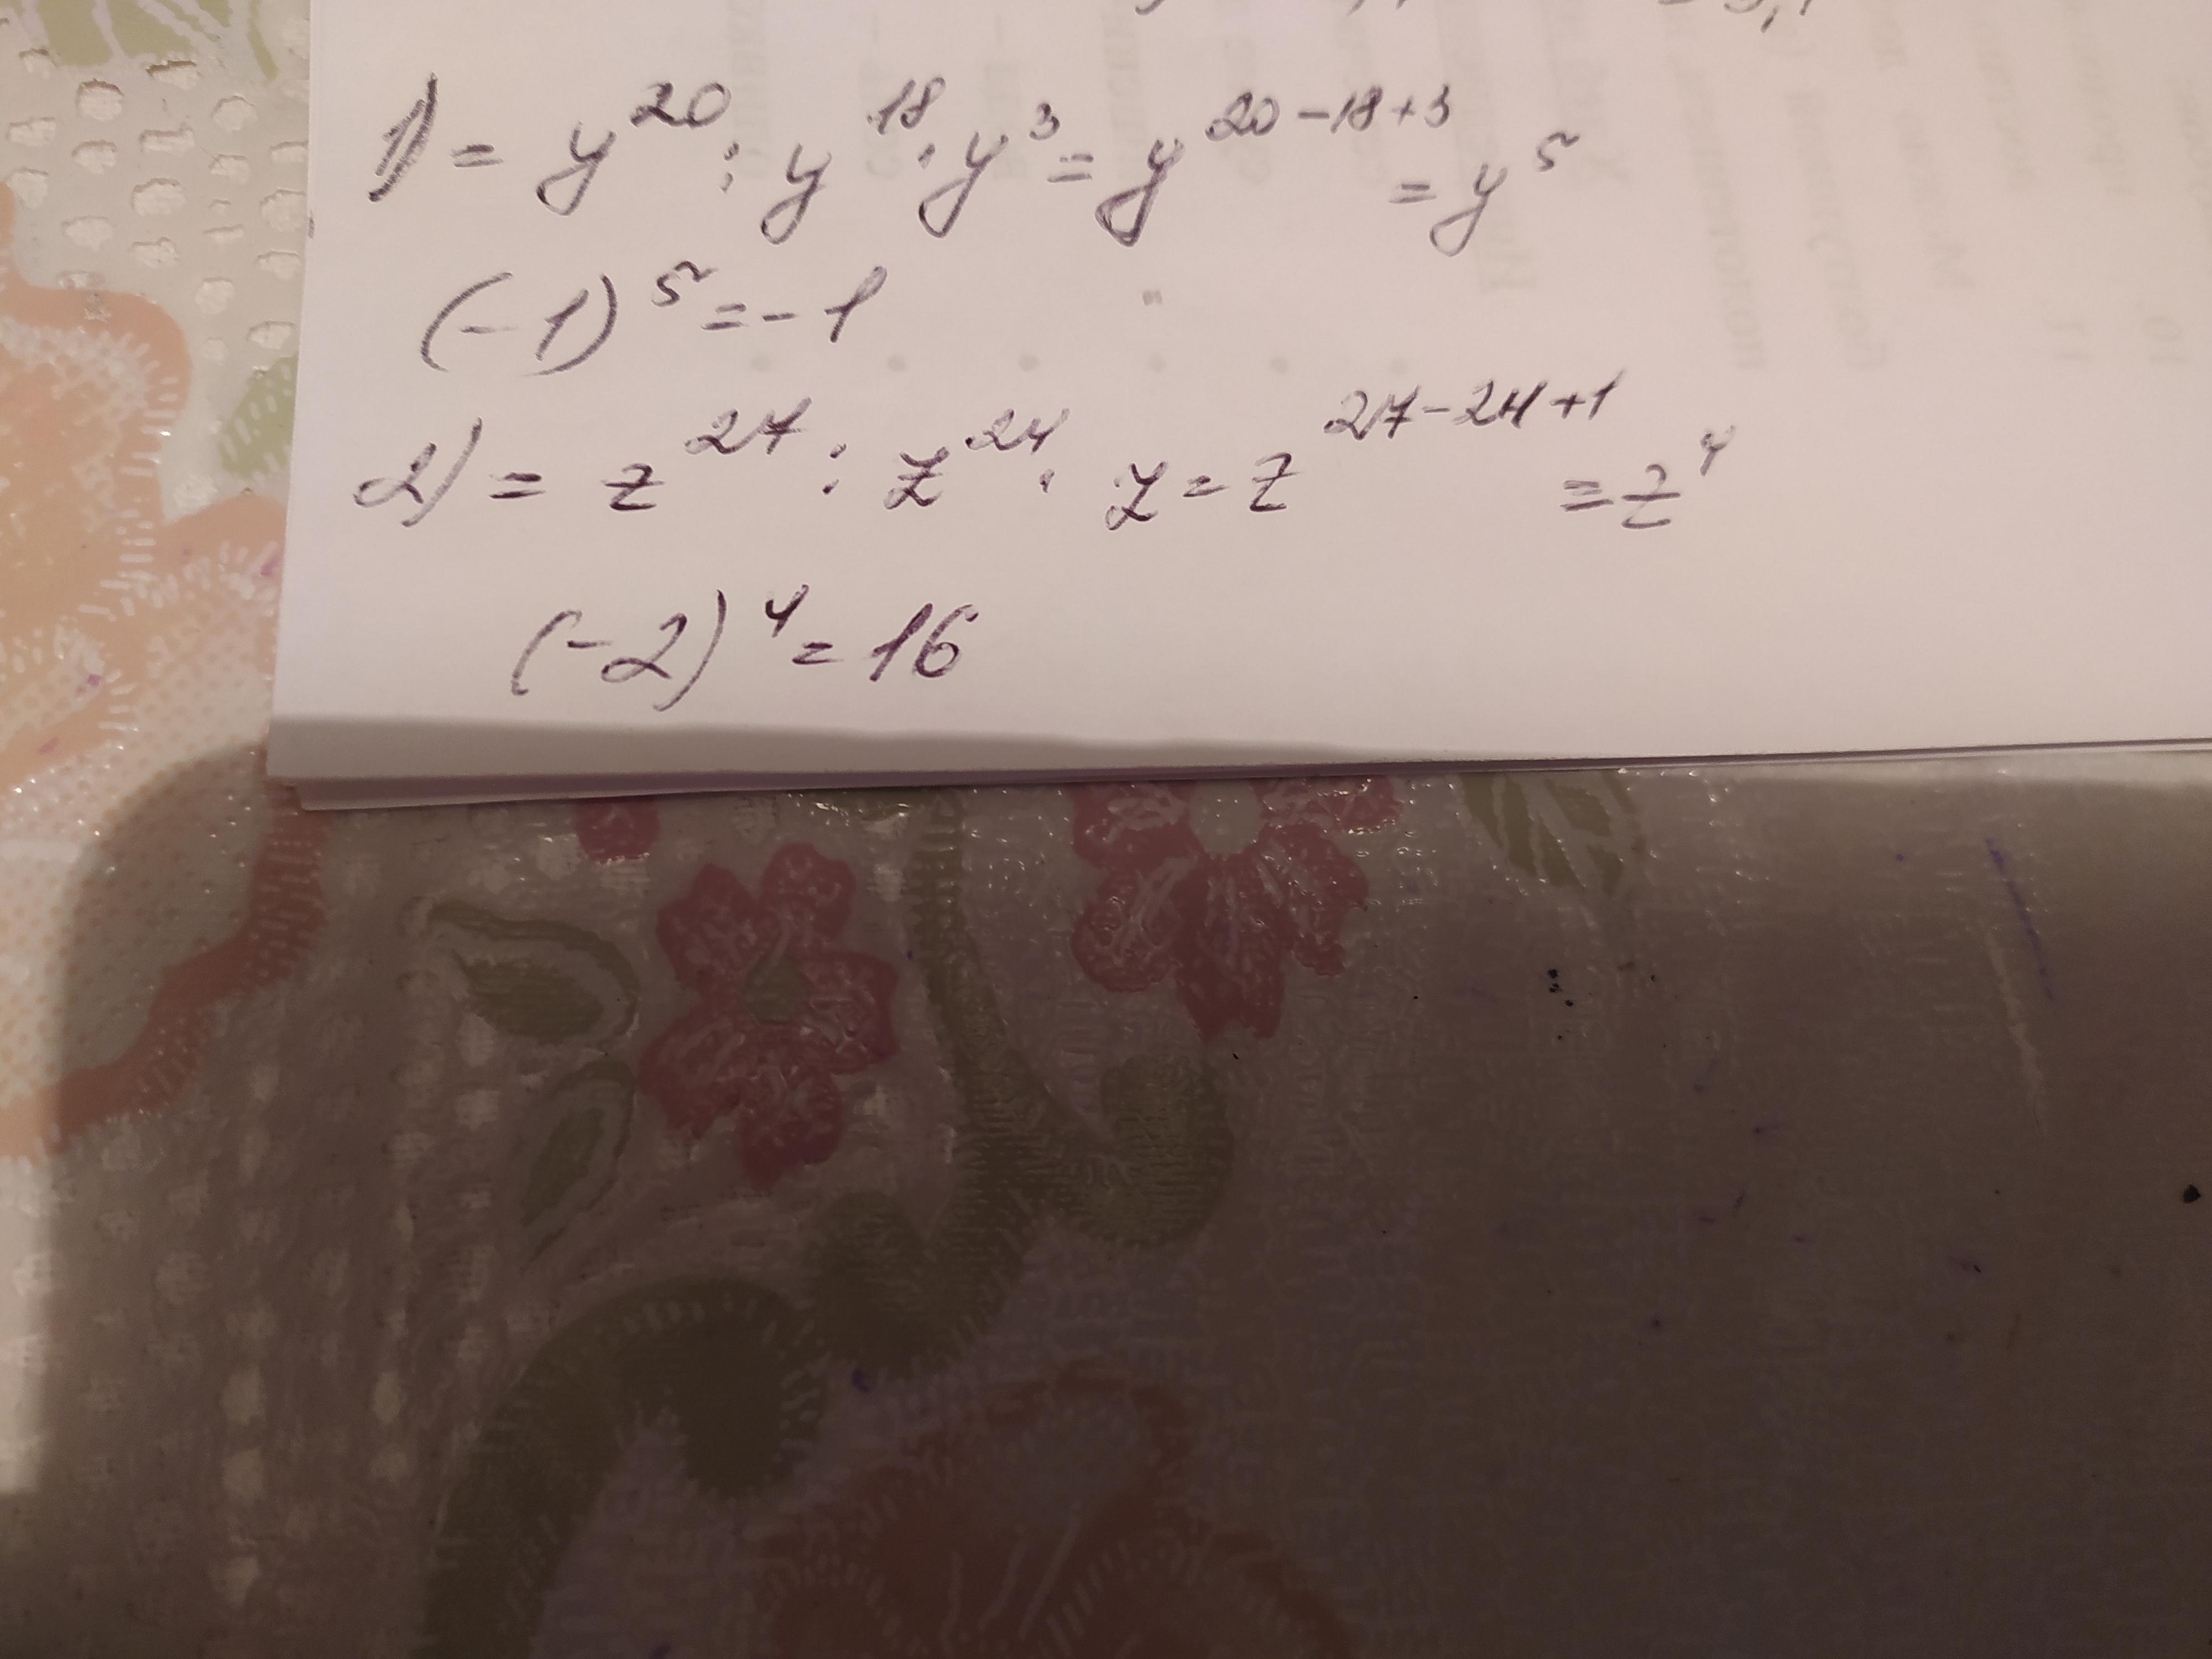 1) = y²⁰ : y¹⁸ · y³ = y²⁰⁻¹⁸⁺³ = y⁵
(-1)⁵ = -1
2) = z²⁷ : z²⁴ · z = z²⁷⁻²⁴⁺¹ = z⁴
(-2)⁴ = 16